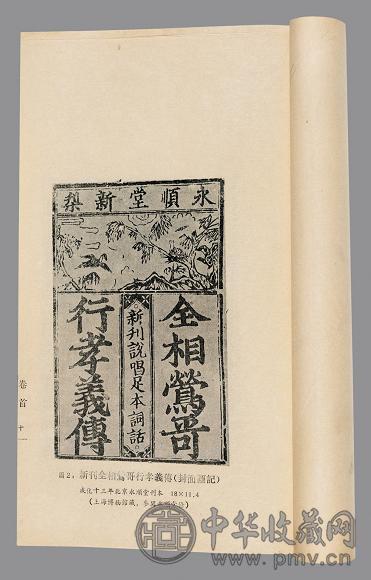 永順堂新槧
全相鶯哥
新刊說唱足本詞話
行孝義傳
卷首
十一
圖2：新刊全相鶯哥行孝義傳(封面題記)
成化十三年北京永順堂刊本 18×11.4
(上海博物館藏，
中华收藏网
www.pmv.cn